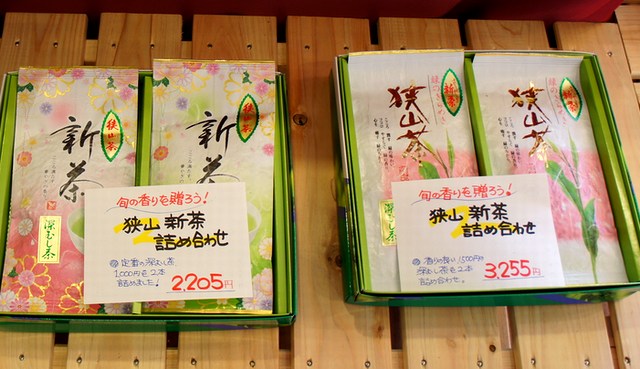 新茶
狭山茶
深むし茶
新茶
狭山茶
旬の香りを贈ろう!
狭山 新茶
詰め合わせ
定番の深むし茶
1,000円を2本
詰めました!
2,205円
狭山茶
新茶
狭山茶
旬の香りを贈ろう!
狭山 新茶
詰め合わせ
香りの良い1,500円の
深むし茶を2本
詰め合わせ。
3,255円